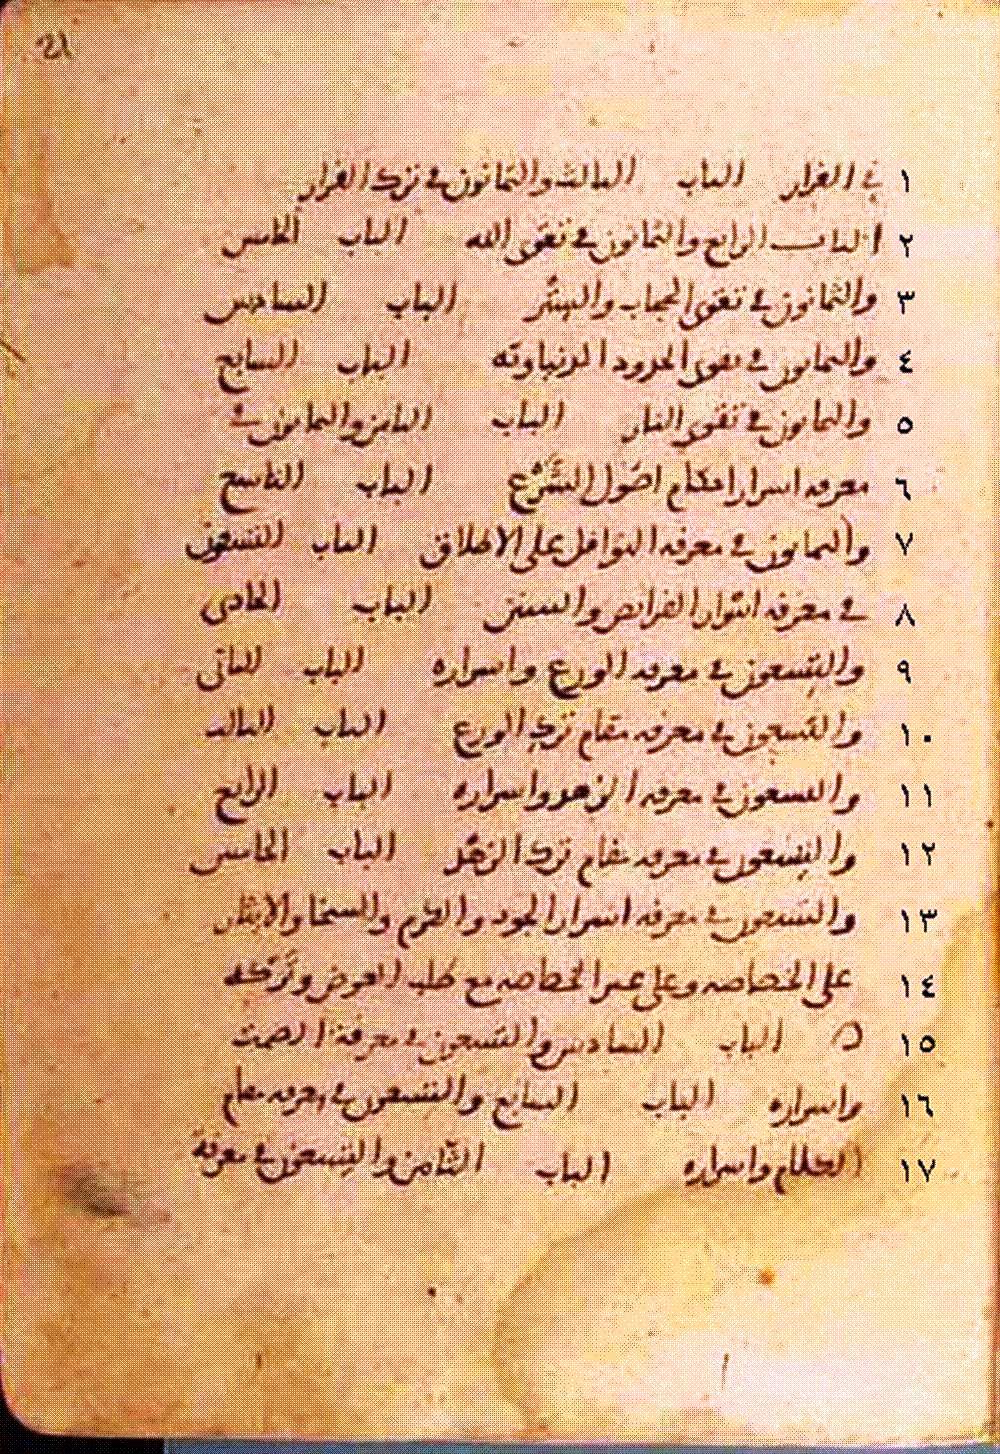 21
١ في الفرار الباب الثالث والثمانون في ترك الفرار
٢ الباب الرابع والثمانون في تقوى الله الباب الخامس
٣ والثمانون في تقوى الحجاب والستر الباب السادس
٤ والثمانون في تقوى الحدود الدنياوية الباب السابع
٥ والثمانون في تقوى النار الباب الثامن والثمانون في
٦ معرفه اسرار احكام اصول الشرع الباب التاسع
٧ والثمانون في معرفه النوافل على الاطلاق الباب التسعون
٨ في معرفه اسرار الفرايض والسنن الباب الحادى
٩ والتسعون في معرفه الورع واسراره الباب الثانى
١٠ والتسعون في معرفه مقام ترك الورع الباب الثالث
١١ والتسعون في معرفه الزهد واسراره الباب الرابع
١٢ والتسعون في معرفه مقام ترك الزهد الباب الخامس
١٣ والتسعون في معرفه اسرار الجود والكرم والسخا والايثار
١٤ على الخصاصه وعلى غير الخصاصه مع طلب العوض وتركه
١٥ الباب السادس والتسعون في معرفة الصمت
١٦ واسراره الباب السابع والتسعون في معرفه مقام
١٧ الكلام واسراره الباب الثامن والتسعون في معرفة